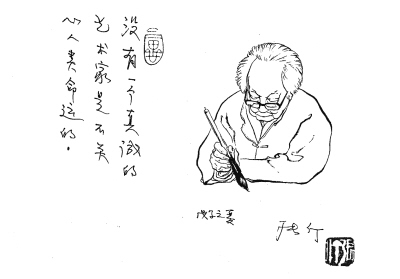 没有一个真诚的
艺术家是不关
心人类命运的。
戊子之夏